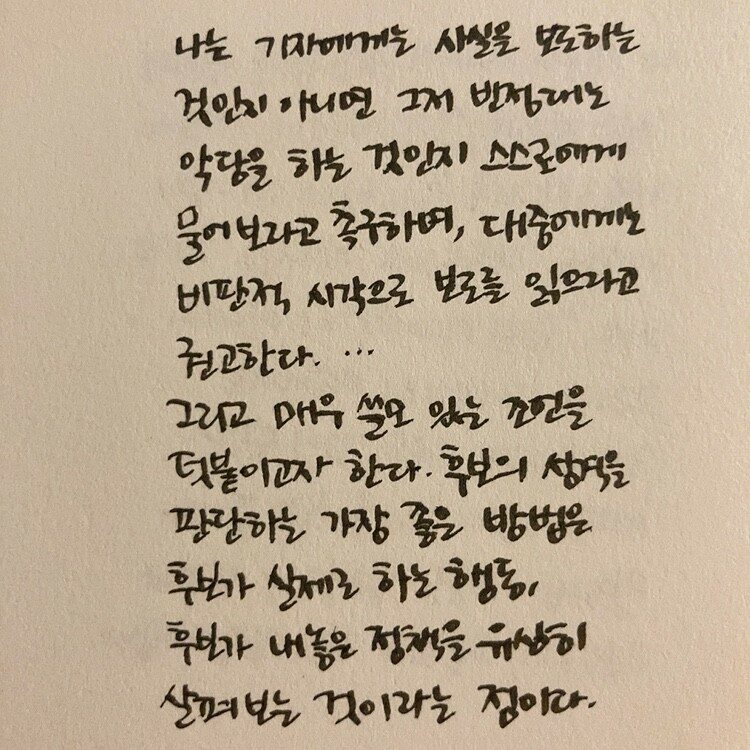 나는 기자에게는 사실을 보도하는
것인지 아니면 그저 반정대는
악당을 하는 것인지 스스로에게
물어보라고 촉구하며, 대중에게는
비판적 시각으로 보도를 읽으라고
권고한다. …
그리고 매우 쓸모 있는 조언을
덧붙이고자 한다. 후보의 성격을
판단하는 가장 좋은 방법은
후보가 실제로 하는 행동,
후보가 내놓은 정책을 유심히
살펴보는 것이라는 점이다.